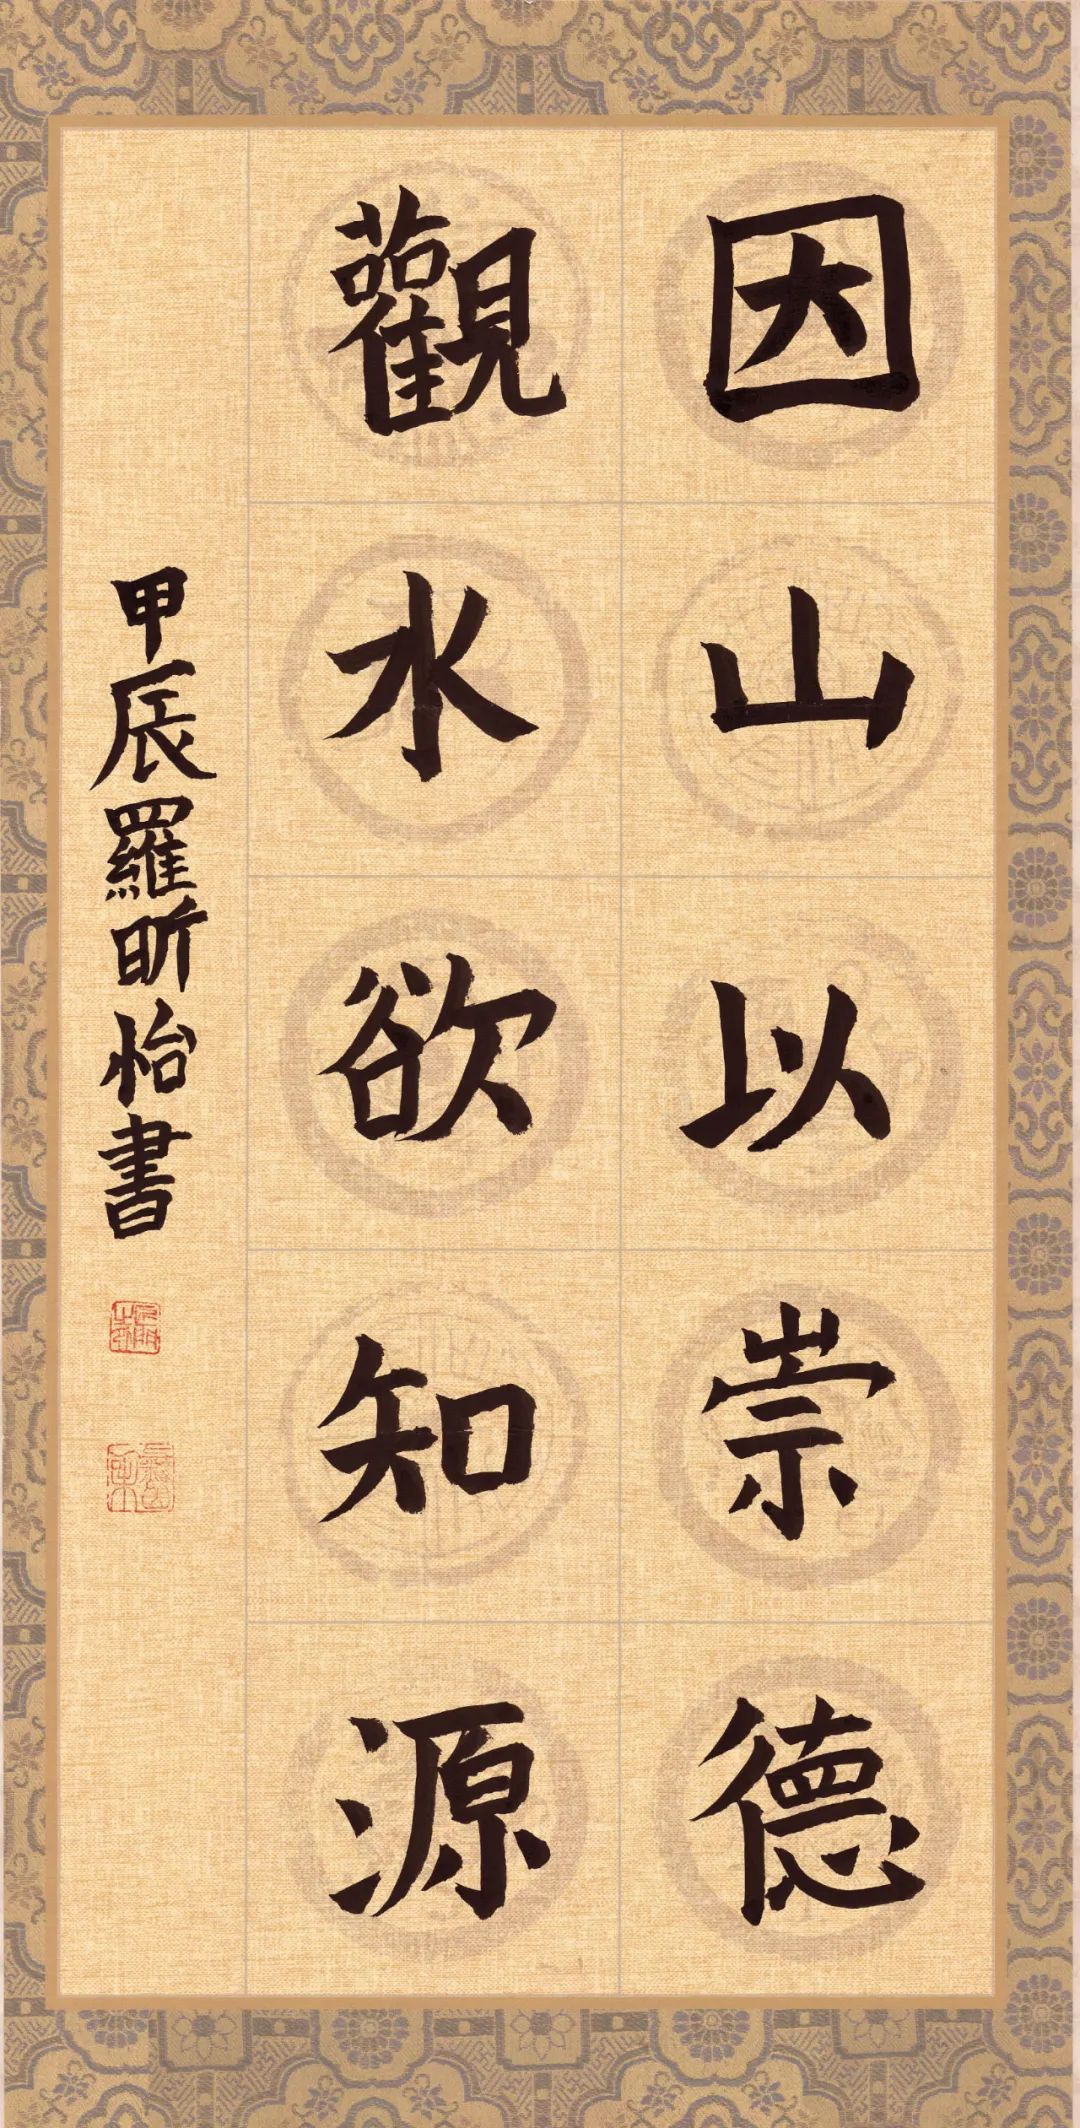 因山以崇德
觀水欲知源
甲辰羅昕怡書